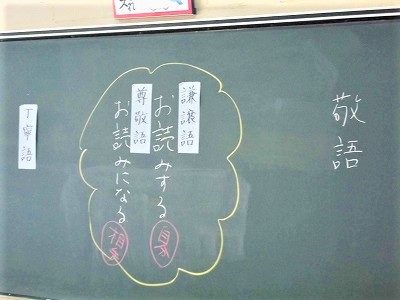 敬語
謙譲語
お読みする
自分
尊敬語
お読みになる
相手
丁寧語